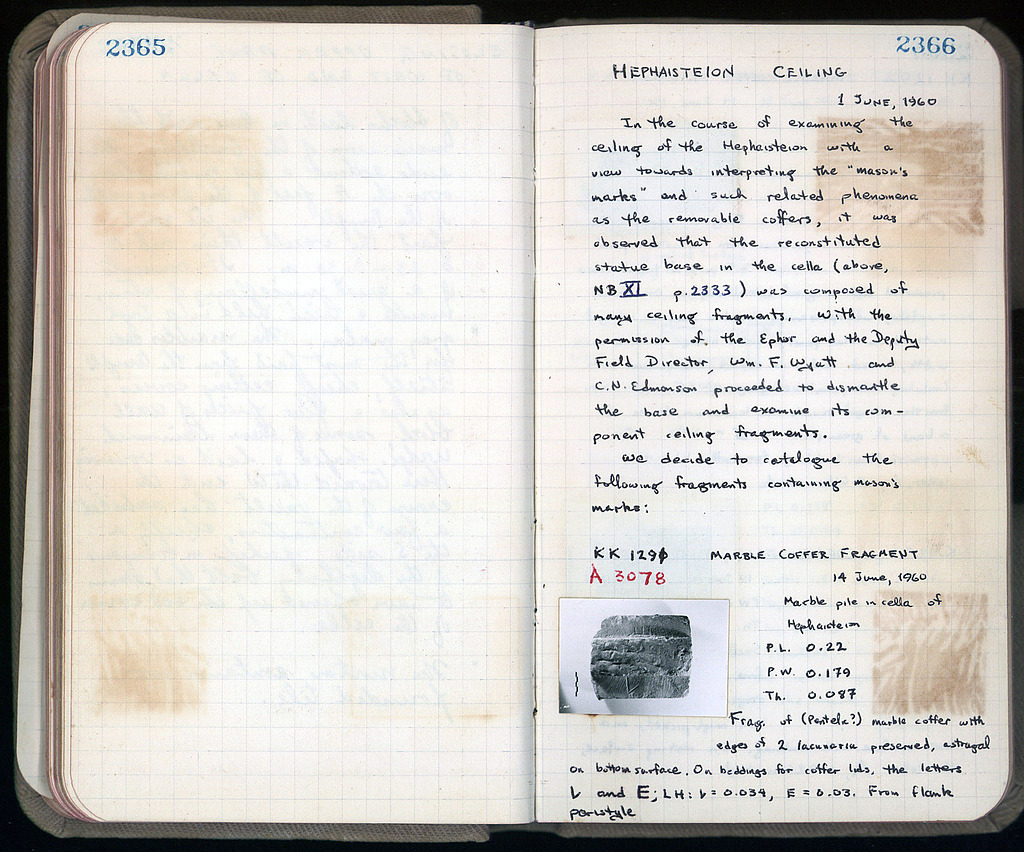 2365
2366
HEPHAISTEION CEILING
1 JUNE, 1960
In the course of examining the
ceiling of the Hephaisteion with a
view towards interpreting the "mason's
marks" and such related phenomena
as the removable coffers, it was
observed that the reconstituted
statue base in the cella (above,
NB XI p.2333) was composed of
many ceiling fragments. With the
permission of the Ephor and the Deputy
Field Director, Wm. F. Wyatt and
C.N. Edmonson proceeded to dismantle
the base and examine its com-
ponent ceiling fragments.
We decide to catalogue the
following fragments containing mason's
marks:
KK 129 MARBLE COFFER FRAGMENT
A 3078
14 June, 1960
Marble pile in cella of
Hephaisteion
P.L. 0.22
P.W. 0.179
Th. 0.087
Frag. of (Pentelic?) marble coffer with
edges of 2 lacunaria preserved, astragal
on bottom surface. On beddings for coffer lids, the letters
and E; LH: = 0.034, E = 0.03. From flank
peristyle